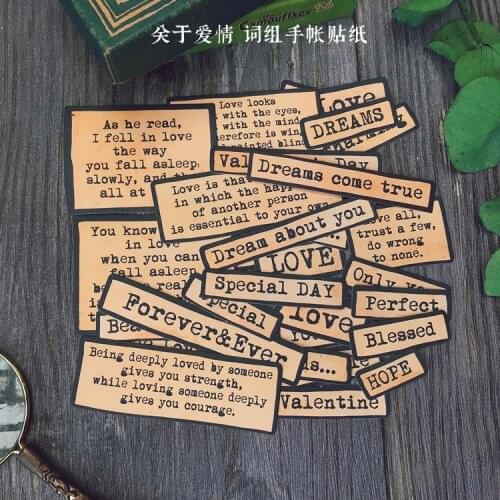 关于爱情 词组手帐贴纸
As he read,
I fell in love
the way
you fall asleep
slowly, and
all at
Love looks
with the eyes,
with the mind
erefore is win
painted blin
Love
DREAMS
Day
Dreams come true
Love is that
in which the hap
of another person
is essential to your own
Dream about you
ve all,
trust a few,
do wrong
to none.
You know
in love
when you can
fall asleep
LOVE
Special DAY
Only
special
love
Perfect
Forever&Ever
Blessed
is...
HOPE
Being deeply loved by someone
gives you strength,
while loving someone deeply
gives you courage.
Valentine